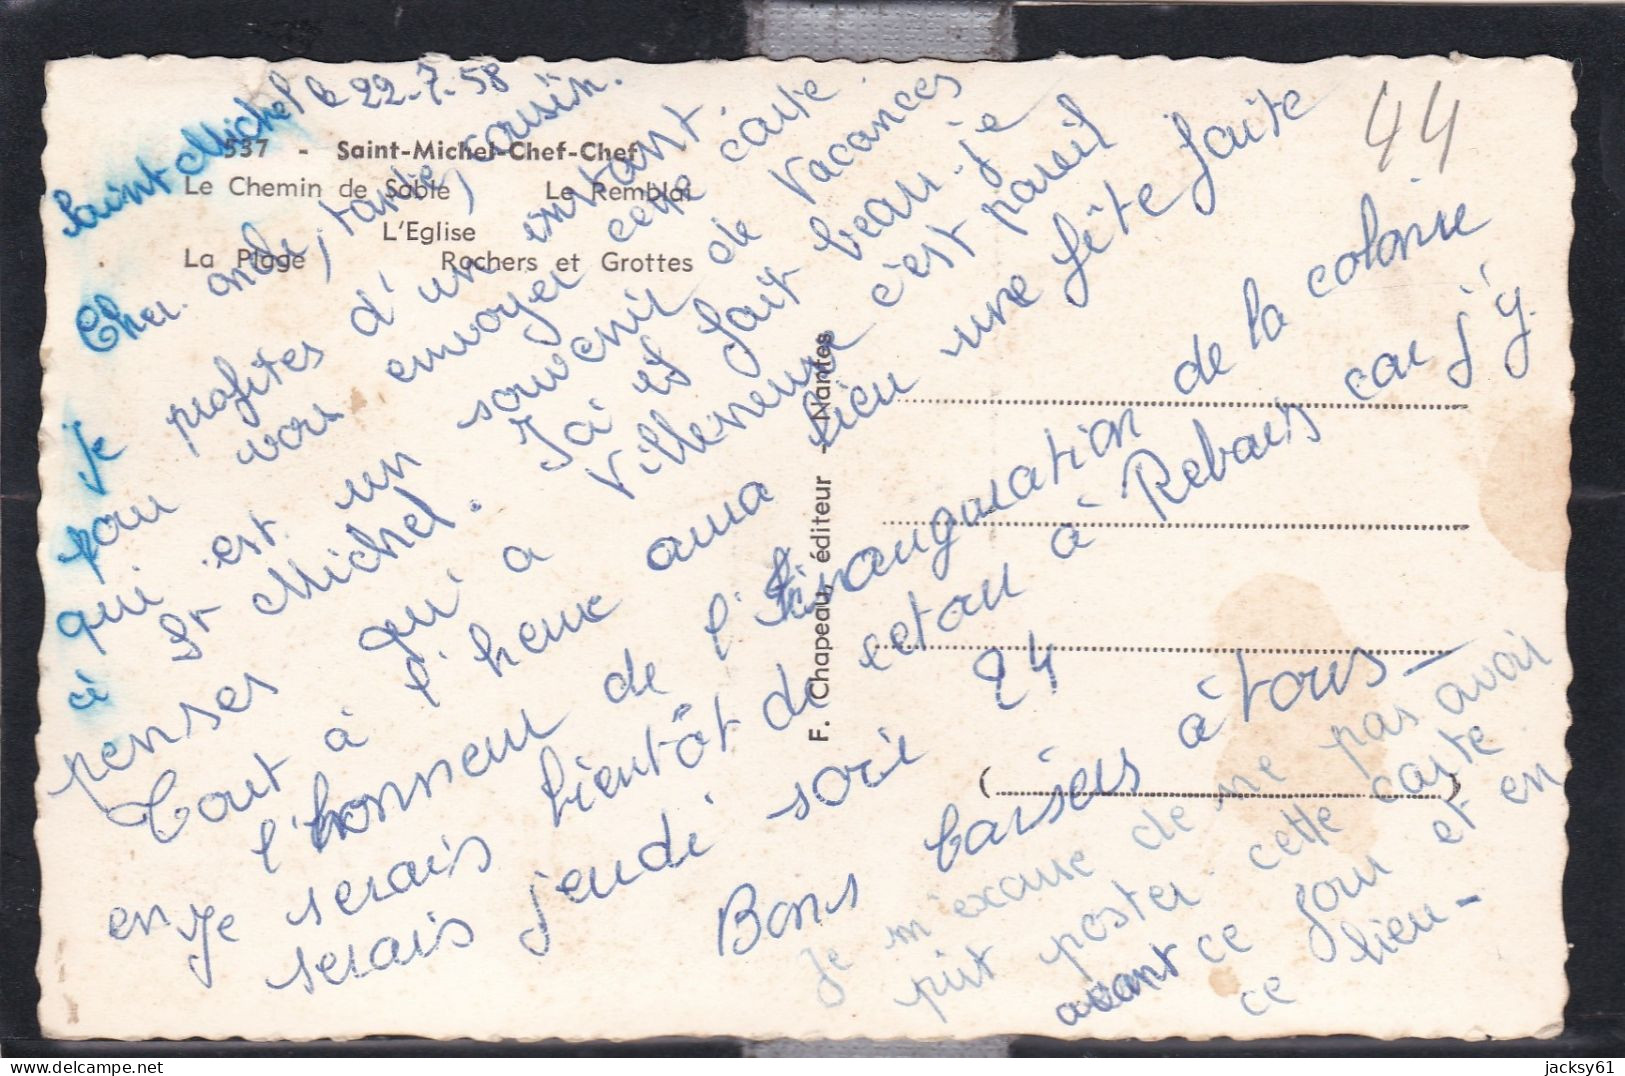 Saint Michel le 22-7-58
537 - Saint-Michel-Chef-Chef
Le Chemin de Sable Le Remblai
L'Eglise
La Plage Rochers et Grottes
Cher oncle, tante, cousin.
Je profites d'un instant
pour vous envoyer cette carte.
qui est un souvenir de vacances
à St Michel. Ici il fait beau je
penses qu'à Villeneuve c'est pareil
Tout à l'heure aura lieu une fête faite
en l'honneur de l'inauguration de la colonie
Je serais bientôt de retour à Rebais car j'y
serais jeudi soir 24
Bons baisers à tous -
Je m'excuse de ne pas avoir
put poster cette carte
avant ce jour et en
ce lieu -
F. Chapeau, éditeur - Nantes
( )
44
jacksy61